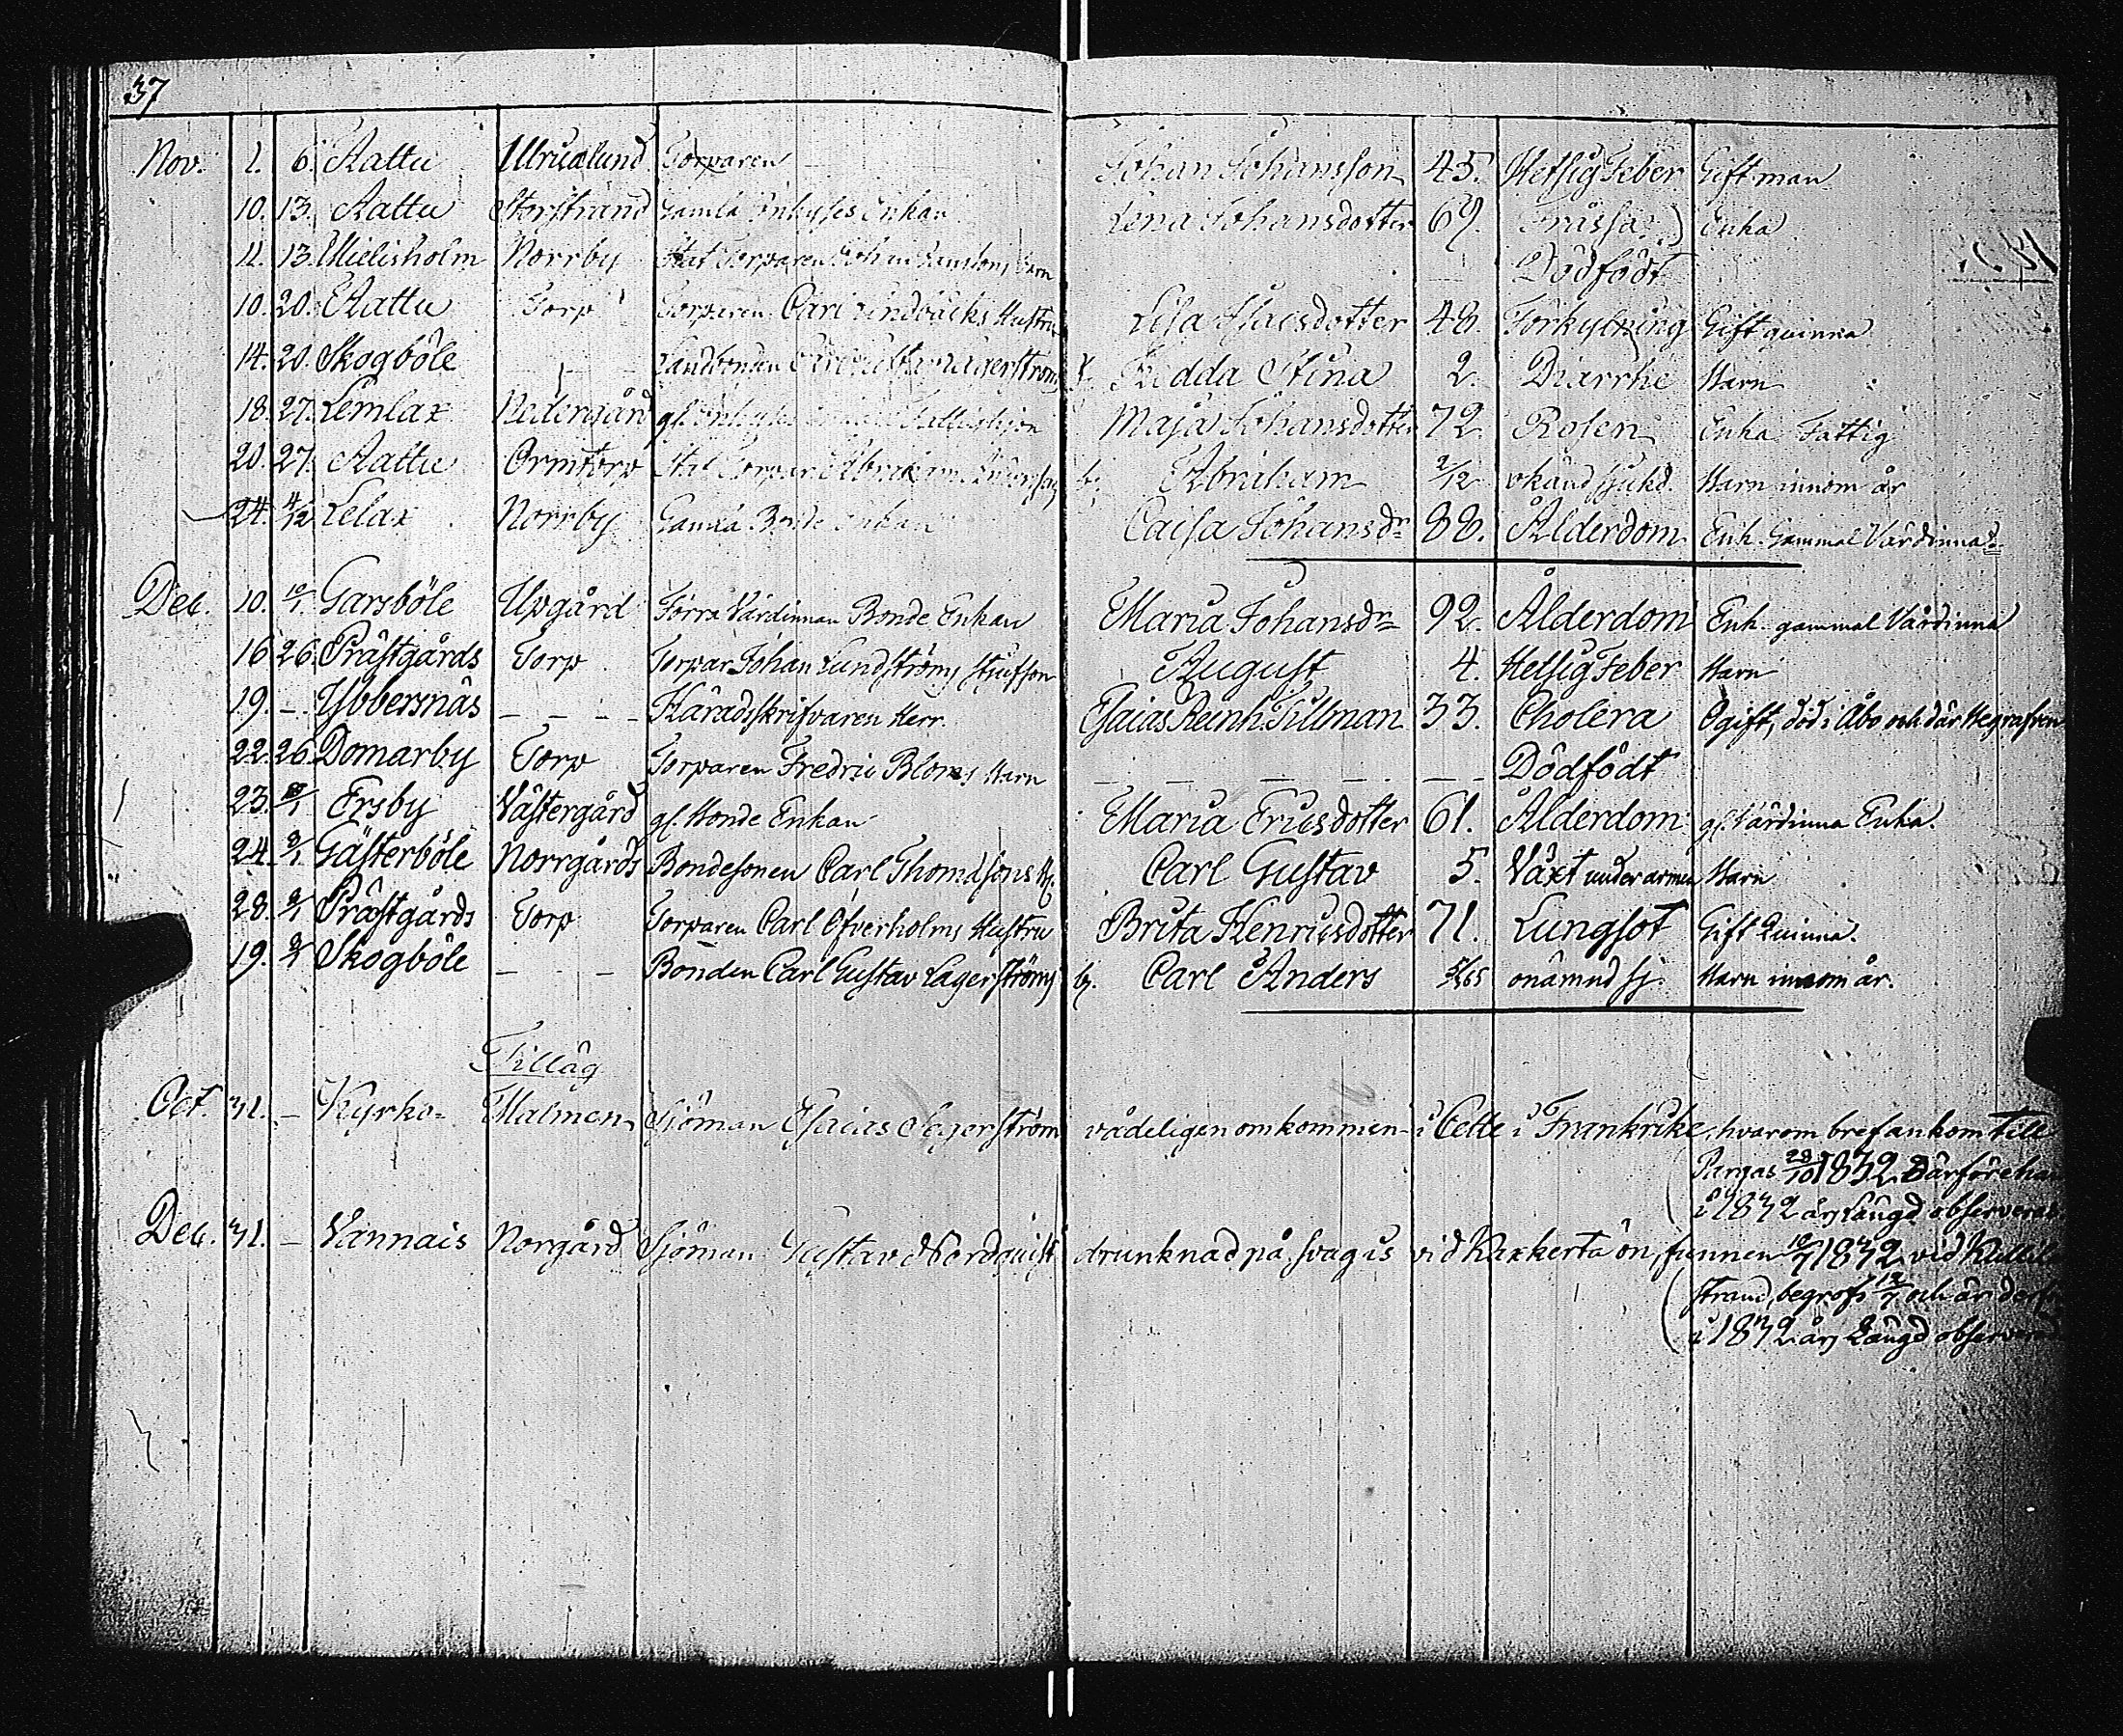 37
Nov. 1. 6. Aattu Ullrucalund Torparen Johan Johansson 45. Hetsig Feber Gift man
10. 13. Aattu Storstrand Gamla Inhyses Enkan Lena Johansdotter 69. Frässa Enka
11. 13. Mielisholm Norrby Stat Torparen Johan barn Dödfödt
10. 20. Aattu Torp Torparen Carl Lindbäcks Hustru Lisa Isacsdotter 48. Förkylning Gift quinna
14. 20. Skogböle - - Landbonden Lagerströms Hedda Stina 2. Diarrhé Barn
18. 27. Lemlax Nedergård gl. Inhyses Maja Johansdotter 72. Rosen Enka Fattig
20. 27. Aattu Ormtorp Stat Torpar Abraham Anderssons b. Abraham 2/12 okänd sjukd. Barn innom år
24. 4/12 Lelax Norrby Gamla Bonde Enkan Caisa Johansdr 88. Ålderdom Enk. Gammal Värdinna
Dec. 10. 10/1 Garsböle Upgård Förra Värdinnan Bonde Enkan Maria Johansdr 92. Ålderdom Enk. gammal Värdinna
16 26. Prästgårds Torp Torpar Johan Lundströms Stufson August 4. Hetsig Feber Barn
19. - Ybbersnäs - - - - Häradsskrifvaren Herr Esaias Reinh. Tillman 33. Cholera Ogift, död i Åbo och där begrafven
22. 26. Domarby Torp Torparen Fredric Bloms Barn - - - - - - Dödfödt
23. Ersby Västergård gl. Bonde Enkan Maria Ericsdotter 61. Ålderdom gl. Värdinna Enka.
24. 8/1 Gästerböle Norrgårds Bondesonen Carl Thomassons b. Carl Gustav 5. Växt under armen Barn
28. 8/1 Prästgårds Torp Torparen Carl Öfverholms Hustru Brita Henricsdotter 71. Lungsot Gift Quinna.
19. Skogböle - - - Bonden Carl Gustav Lagerströms b. Carl Anders onämnd sj. Barn innom år.
Tilläg
Oct. 31. - Kyrko- Malmen Sjöman Esaias Segerström vådeligen omkommen i Cette i Frankrike, hvarom bref ankom till
Pargas 28/10 1832. Därföre han
i 1832 års Längd observeras
Dec. 31. - Vannais Norgård Sjöman Gustav Nordquist drunknad på svag is vid Kaxkerta ön, funnen 10/7 1832 vid
strand, begrofs 12/7 och är
i 1832 års Längd observerad